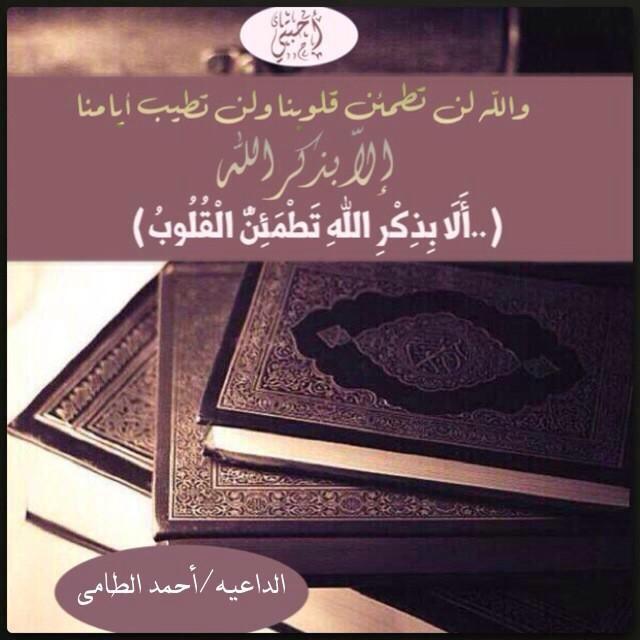 أحبتي
والله لن تطمئن قلوبنا ولن تطيب أيامنا
إلا بذكر الله
(..أَلَا بِذِكْرِ اللهِ تَطْمَئِنُّ الْقُلُوبُ)
الداعيه/أحمد الطامى